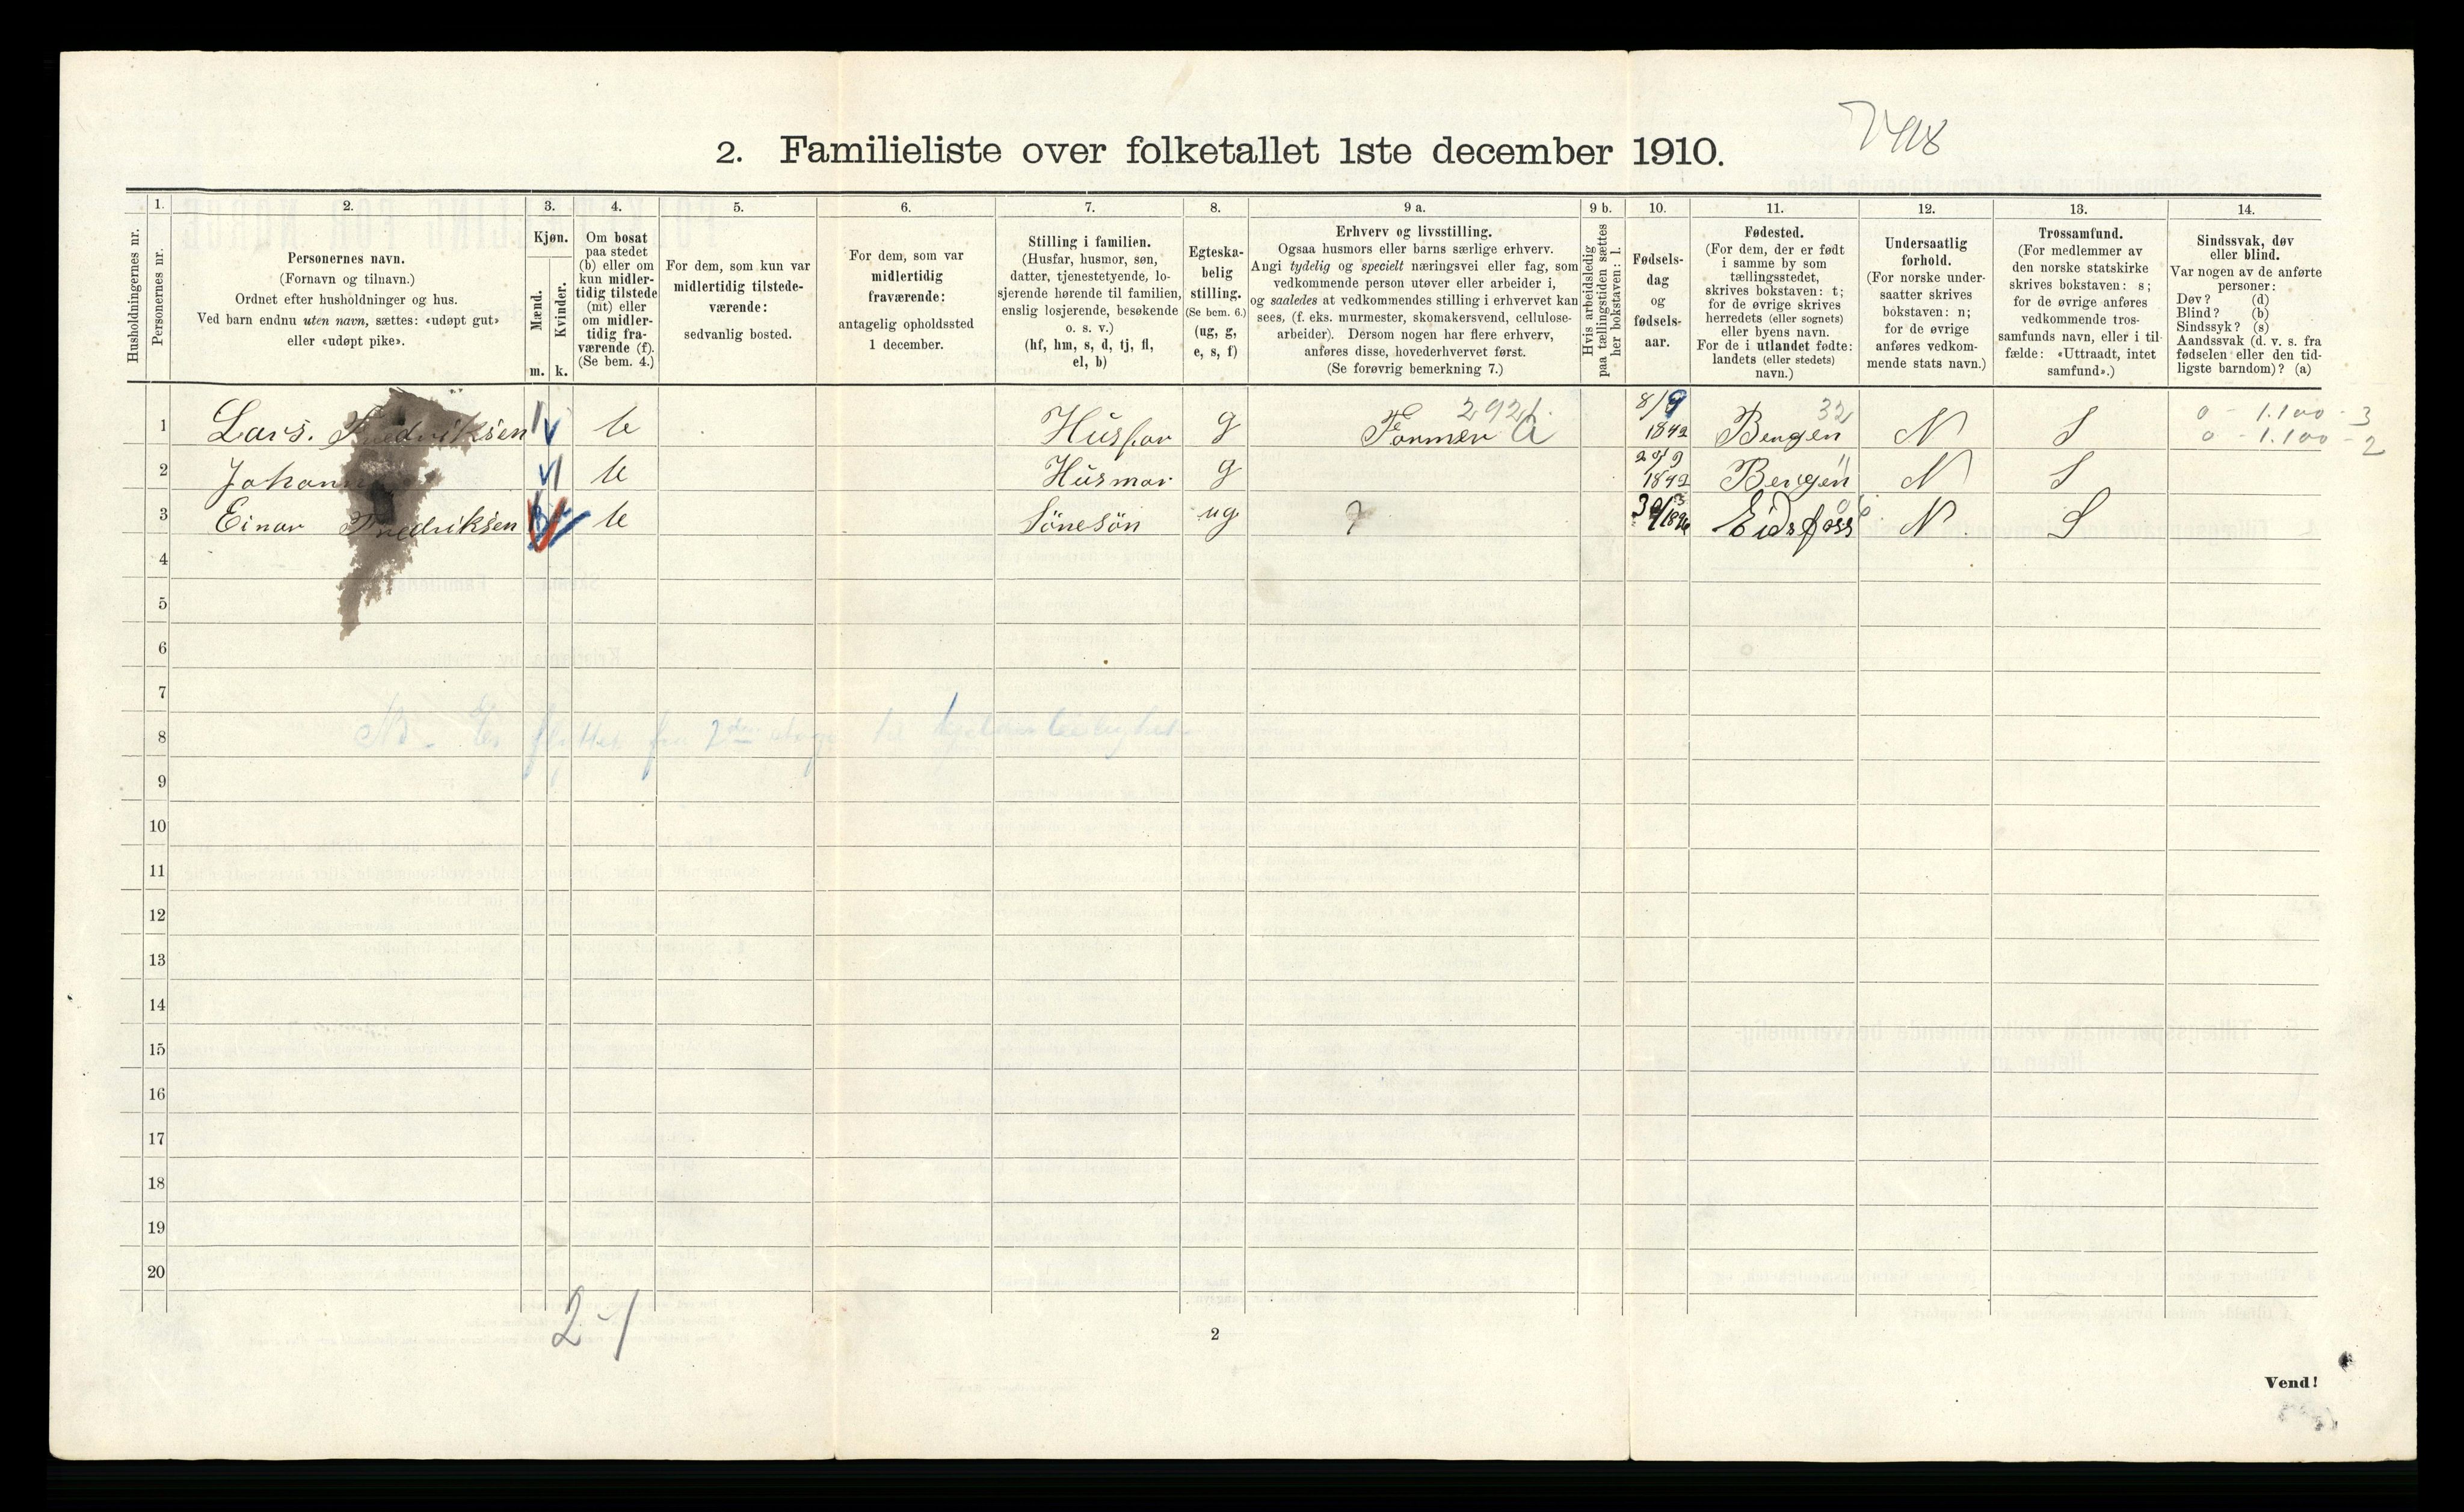 7418
2. Familieliste over folketallet 1ste december 1910.
Husholdningernes nr.
1.
Personernes nr.
2.
Personernes navn.
(Fornavn og tilnavn.)
Ordnet efter husholdninger og hus.
Ved barn endnu uten navn, sættes: «udøpt gut»
eller «udøpt pike».
3.
Kjøn.
Mænd.
Kvinder.
m. k.
4.
Om bosat
paa stedet
(b) eller om
kun midler-
tidig tilstede
(mt) eller
om midler-
tidig fra-
værende (f).
(Se bem. 4.)
5.
For dem, som kun var
midlertidig tilstede-
værende:
sedvanlig bosted.
6.
For dem, som var
midlertidig
fraværende:
antagelig opholdssted
1 december.
7.
Stilling i familien.
(Husfar, husmor, søn,
datter, tjenestetyende, lo-
sjerende hørende til familien,
enslig losjerende, besøkende
o. s. v.)
(hf, hm, s, d, tj, fl,
el, b)
8.
Egteska-
belig
stilling.
(Se bem. 6.)
(ug, g,
e, s, f)
9 a.
Erhverv og livsstilling.
Ogsaa husmors eller barns særlige erhverv.
Angi tydelig og specielt næringsvei eller fag, som
vedkommende person utøver eller arbeider i,
og saaledes at vedkommendes stilling i erhvervet kan
sees, (f. eks. murmester, skomakersvend, cellulose-
arbeider). Dersom nogen har flere erhverv,
anføres disse, hovederhvervet først.
(Se forøvrig bemerkning 7.)
9 b.
Hvis arbeidsledig
paa tællingstiden sættes
her bokstaven: l.
10.
Fødsels-
dag
og
fødsels-
aar.
11.
Fødested.
(For dem, der er født
i samme by som
tællingsstedet,
skrives bokstaven: t;
for de øvrige skrives
herredets (eller sognets)
eller byens navn.
For de i utlandet fødte:
landets (eller stedets)
navn.)
12.
Undersaatlig
forhold.
(For norske under-
saatter skrives
bokstaven: n;
for de øvrige
anføres vedkom-
mende stats navn.)
13.
Trossamfund.
(For medlemmer av
den norske statskirke
skrives bokstaven: s;
for de øvrige anføres
vedkommende tros-
samfunds navn, eller i til-
fælde: «Uttraadt, intet
samfund».)
14.
Sindssvak, døv
eller blind.
Var nogen av de anførte
personer:
Døv? (d)
Blind? (b)
Sindssyk? (s)
Aandssvak (d. v. s. fra
fødselen eller den tid-
ligste barndom)? (a)
1 Lars. Fredriksen b Husfar g Former 8/9 1842 Bergen 32 N S 0 - 1.100 - 3
0 - 1.100 - 2
2 b Husmor g 1842 Bergen " N S
3 Einar Fredriksen b Sönesön ug Eidsfoss N S
4
5
6
7
8 NB. Er flyttet fra 2den etage til
9
10
11
12
13
14
15
16
17
18
19
20
2-1
2
Vend!